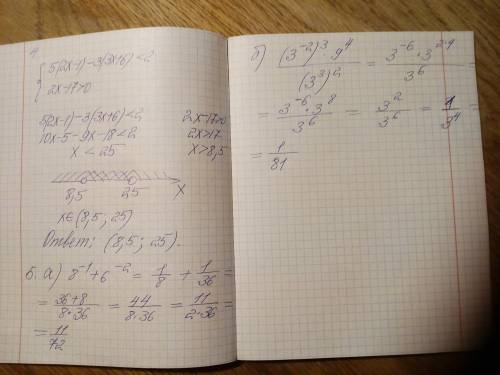 4
{ 5(2x-1)-3(3x+6)<2
2x-17>0
5(2x-1)-3(3x+6)<2 2x-17>0
10x-5-9x-18<2 2x>17
x < 25 x>8,5
8,5 25 x
x∈(8,5; 25)
Ответ: (8,5; 25).
5. а) 8^{-1}+6^{-2} = 1/8 + 1/36 =
= (36+8)/(8·36) = 44/(8·36) = 11/(2·36) =
= 11/72
б) ((3^{-2})^3 · 9^4)/(3^3)^2 = (3^{-6} · 3^{2·4})/3^6 =
= (3^{-6} · 3^8)/3^6 = 3^2/3^6 = 1/3^4 =
= 1/81